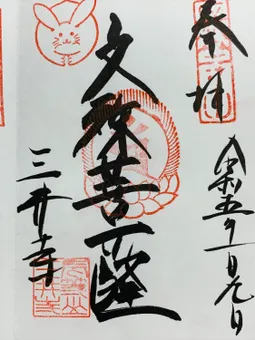 奉拝
令和五年一月九日
文殊菩薩
三井寺